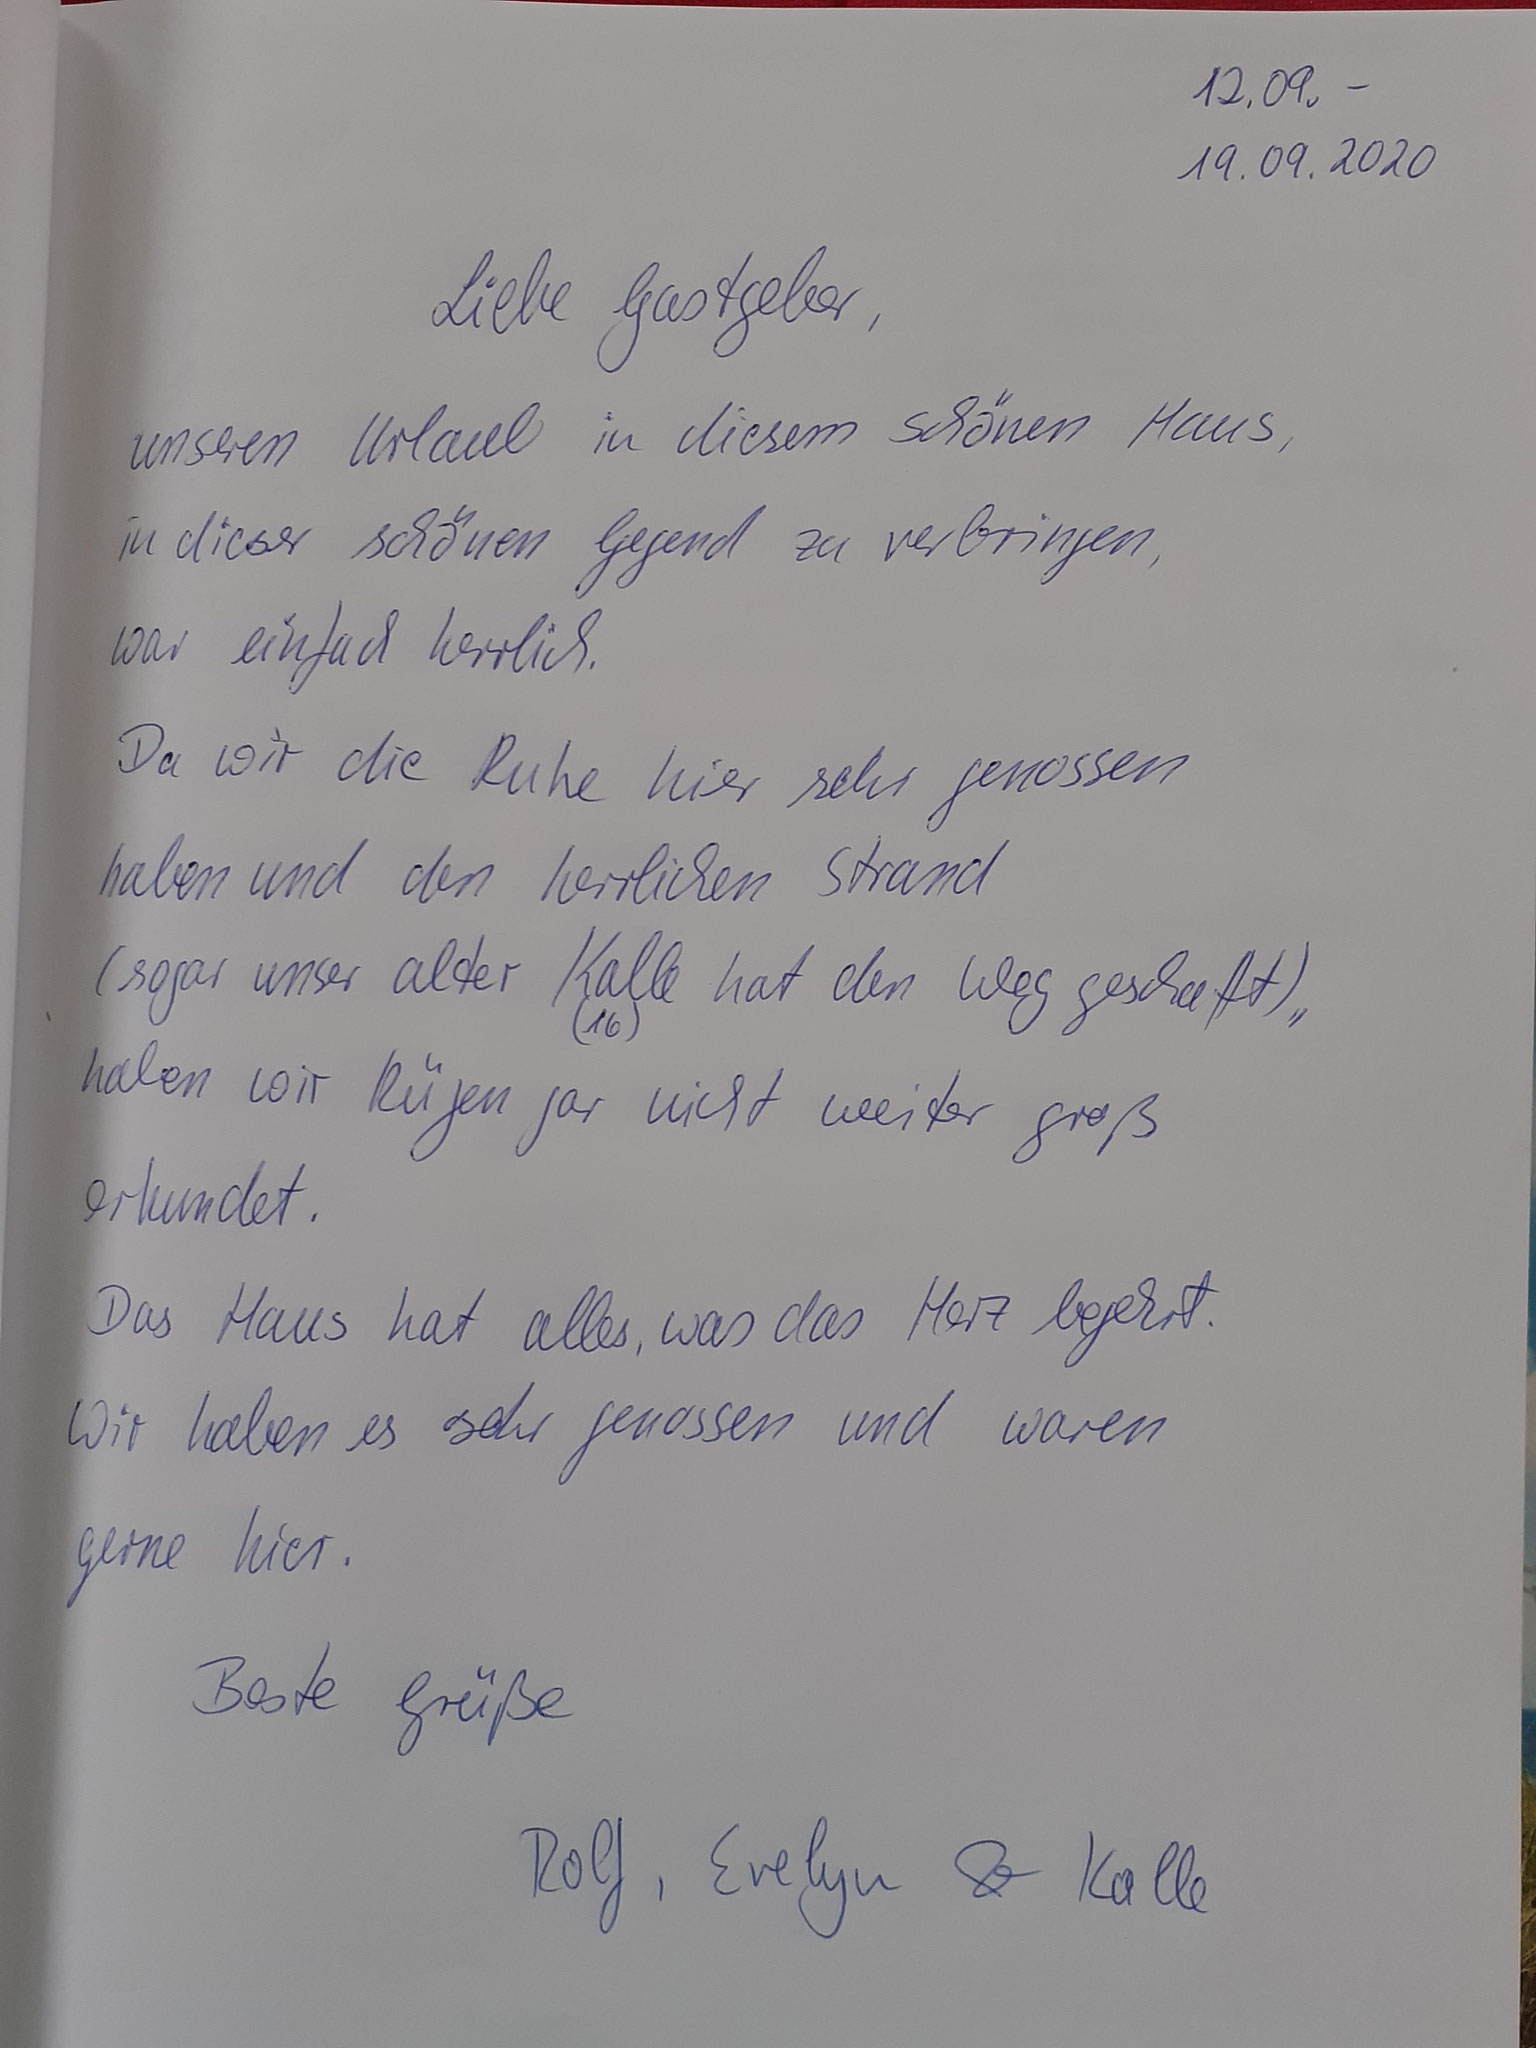 12.09. -
19.09.2020
Liebe Gastgeber,
unseren Urlaub in diesem schönen Haus,
in dieser schönen Gegend zu verbringen,
war einfach herrlich.
Da wir die Ruhe hier sehr genossen
haben und den herrlichen Strand
(sogar unser alter Kalle hat den Weg geschafft),,
(16)
haben wir Rügen gar nicht weiter groß
erkundet.
Das Haus hat alles, was das Herz begehrt.
Wir haben es sehr genossen und waren
gerne hier.
Beste Grüße
Rolf, Evelyn & Kalle